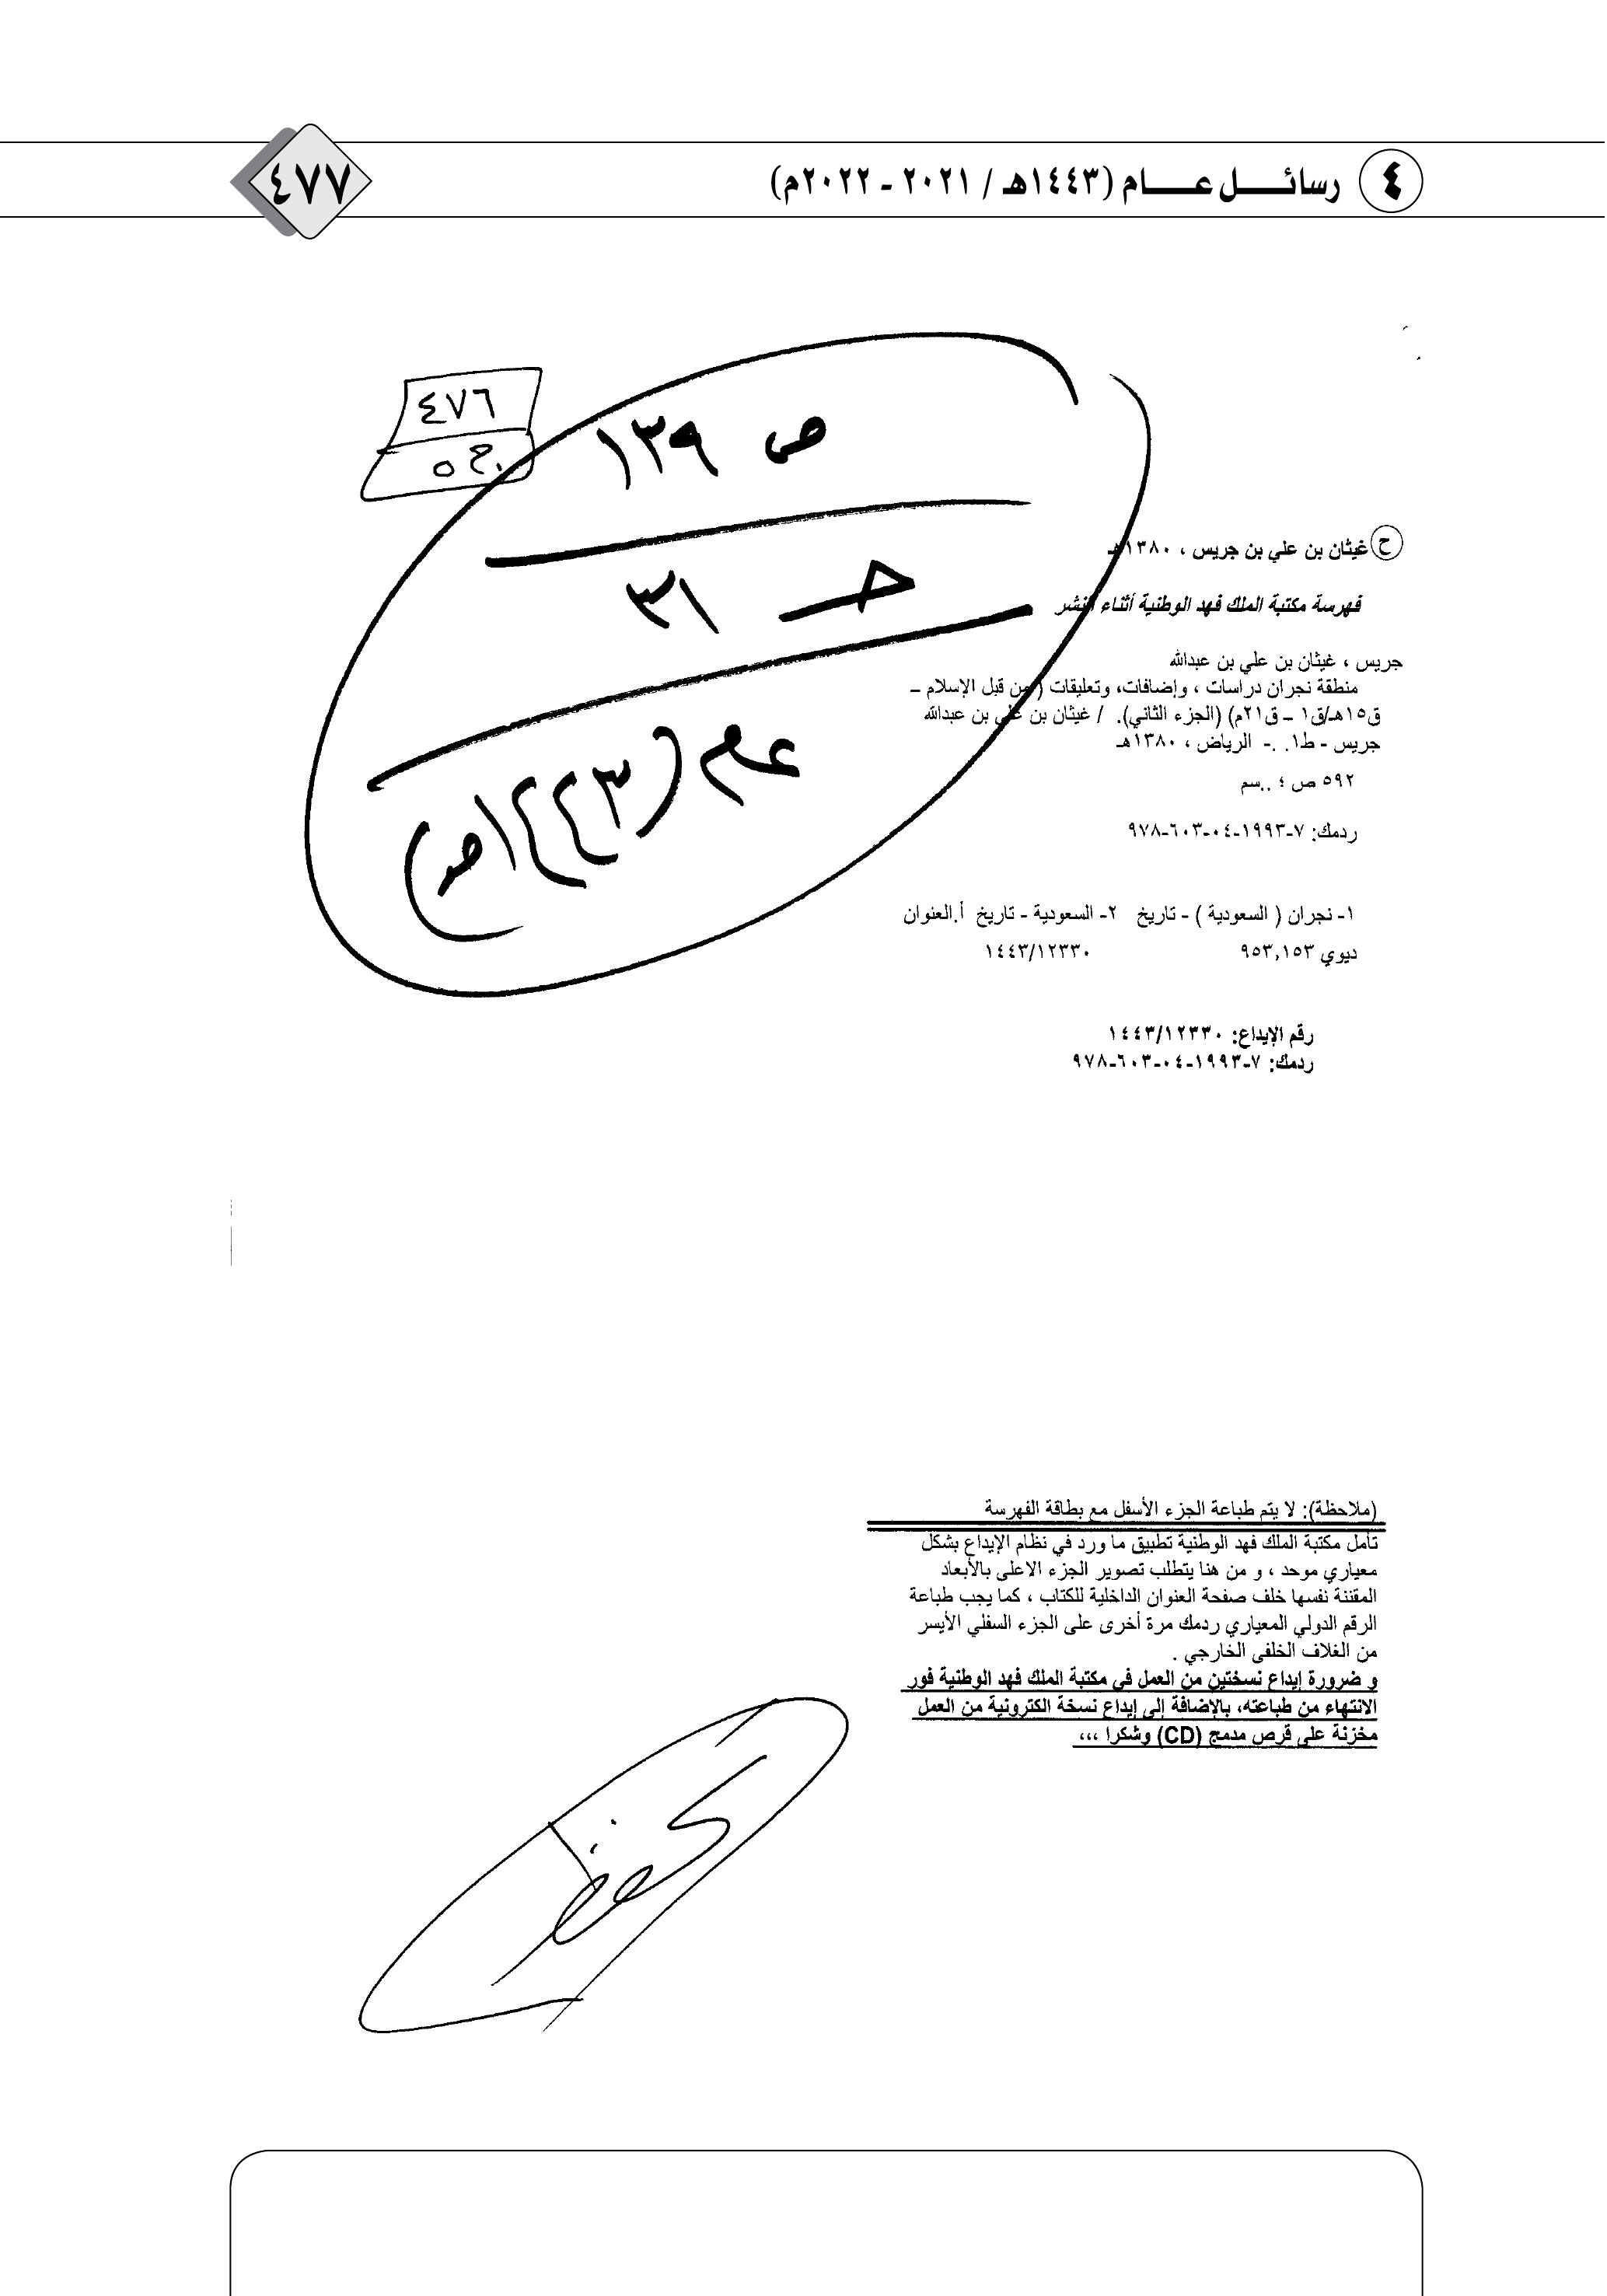 ٤ رسائل عام (١٤٤٣هـ / ٢٠٢١ - ٢٠٢٢م)
٤٧٧
٤٧٦
ص ١٣٩
حـ ٣١
عام (١٤٤٣هـ)
ح غيثان بن علي بن جريس ، ١٣٨٠هـ
فهرسة مكتبة الملك فهد الوطنية أثناء النشر
جريس ، غيثان بن علي بن عبدالله
منطقة نجران دراسات ، وإضافات، وتعليقات (من قبل الإسلام –
ق١٥هـ/ق١ – ق٢١م) (الجزء الثاني). / غيثان بن علي بن عبدالله
جريس - ط١. .- الرياض ، ١٣٨٠هـ
٥٩٢ ص ؛ ..سم
ردمك: ٧-١٩٩٣-٠٤-٦٠٣-٩٧٨
١- نجران ( السعودية ) - تاريخ ٢- السعودية - تاريخ أ.العنوان
ديوي ٩٥٣,١٥٣ ١٤٤٣/١٢٣٣٠
رقم الإيداع: ١٤٤٣/١٢٣٣٠
ردمك: ٧-١٩٩٣-٠٤-٦٠٣-٩٧٨
(ملاحظة): لا يتم طباعة الجزء الأسفل مع بطاقة الفهرسة
تأمل مكتبة الملك فهد الوطنية تطبيق ما ورد في نظام الإيداع بشكل
معياري موحد ، و من هنا يتطلب تصوير الجزء الاعلى بالأبعاد
المقننة نفسها خلف صفحة العنوان الداخلية للكتاب ، كما يجب طباعة
الرقم الدولي المعياري ردمك مرة أخرى على الجزء السفلي الأيسر
من الغلاف الخلفي الخارجي .
و ضرورة إيداع نسختين من العمل في مكتبة الملك فهد الوطنية فور
الانتهاء من طباعته، بالإضافة إلى إيداع نسخة الكترونية من العمل
مخزنة على قرص مدمج (CD) وشكرا ،،،